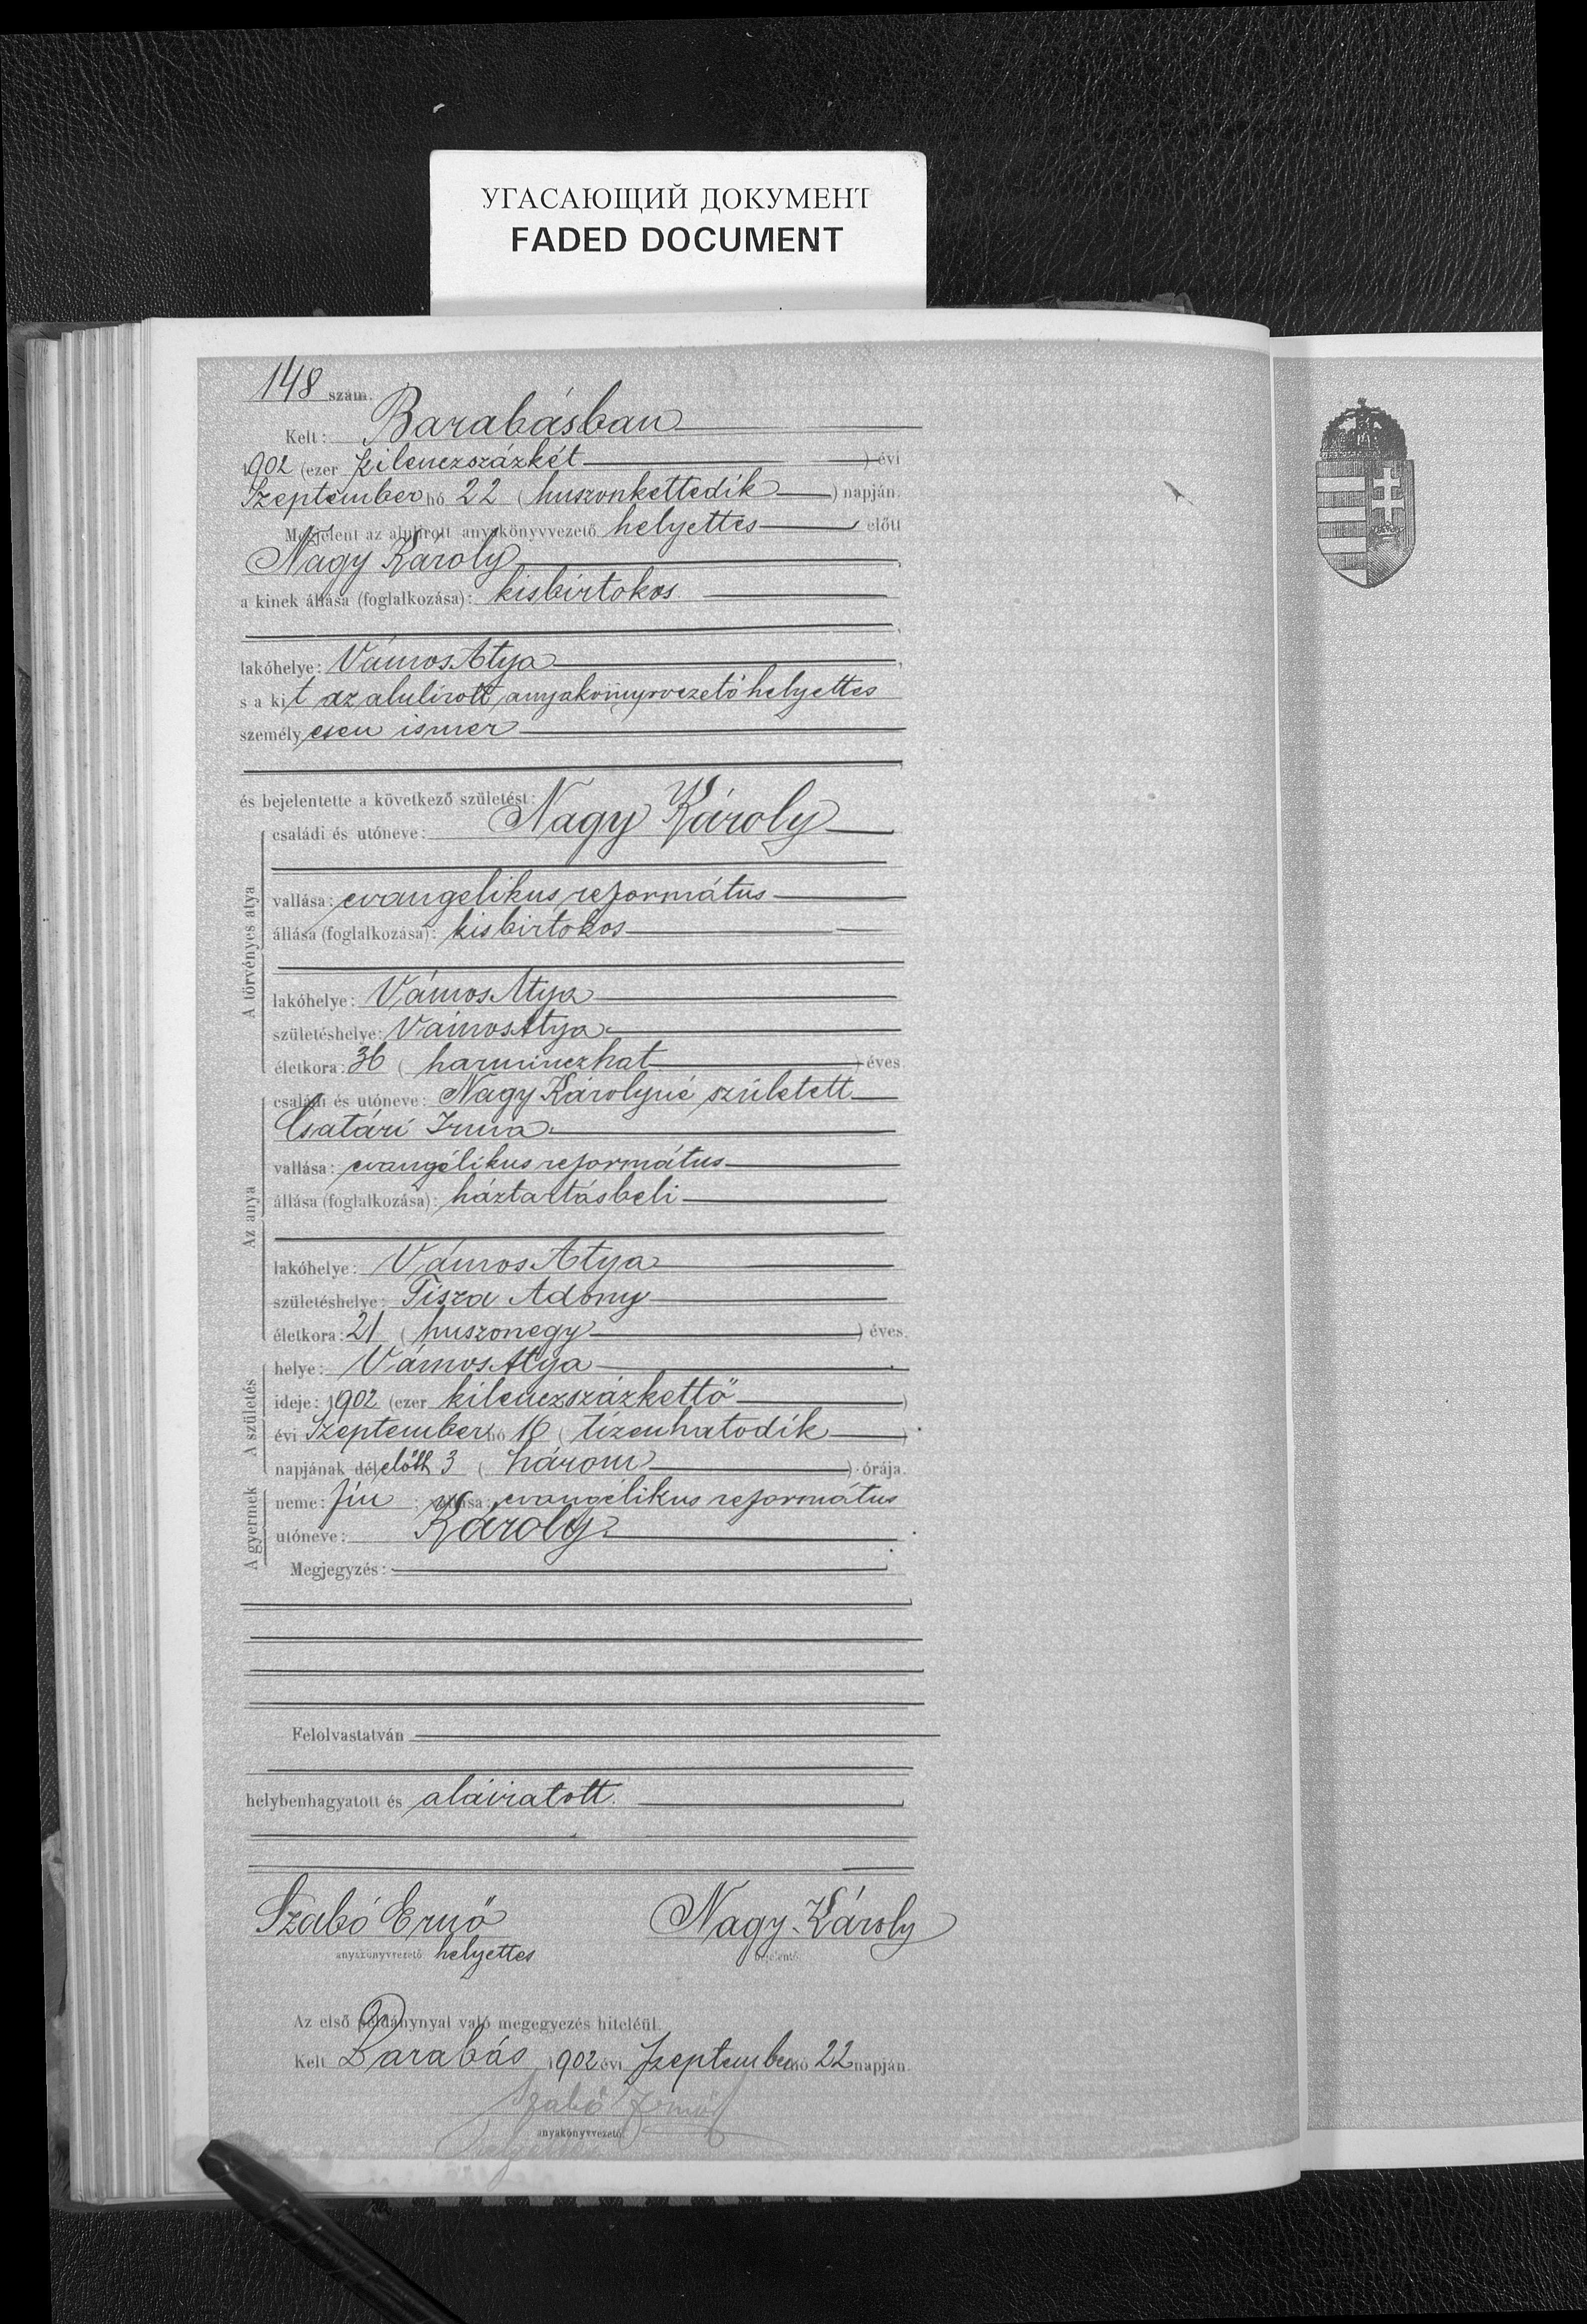 УГАСАЮЩИЙ ДОКУМЕНТ
FADED DOCUMENT
148 szám.
Kelt: Barabásban
1902 (ezer kilenczszázkét) évi
Szeptember hó 22 (huszonkettedik) napján.
Megjelent az alulirott anyakönyvvezető helyettes előtt
Nagy Károly,
a kinek állása (foglalkozása): kisbirtokos
lakóhelye: VámosAtya,
s a kit az alulirott anyakönyvvezetőhelyettes
személyesen ismer
és bejelentette a következő születést:
A törvényes atya
családi és utóneve: Nagy Károly
vallása: evangelikus református
állása (foglalkozása): kisbirtokos
lakóhelye: VámosAtya
születéshelye: VámosAtya
életkora: 36 (harminczhat) éves.
Az anya
családi és utóneve: Nagy Károlyné született
Csatári Irma
vallása: evangélikus református
állása (foglalkozása): háztartásbeli
lakóhelye: Vámos Atya
születéshelye: Tisza Adony
életkora: 21 (huszonegy) éves.
A születés
helye: VámosAtya
ideje: 1902 (ezer kilenczszázkettő)
évi Szeptember hó 16 (tizenhatodik)
napjának délelőtt 3 (három) órája.
A gyermek
neme: fiu; vallása: evangélikus református
utóneve: Károly
Megjegyzés:
Felolvastatván
helybenhagyatott és aláiratott.
Szabó Ernő Nagy Károly
anyakönyvvezető helyettes bejelentő.
Az első példánynyal való megegyezés hiteléül.
Kelt Barabás 1902 évi Szeptember hó 22 napján.
Szabó Ernő
anyakönyvvezető
helyettes